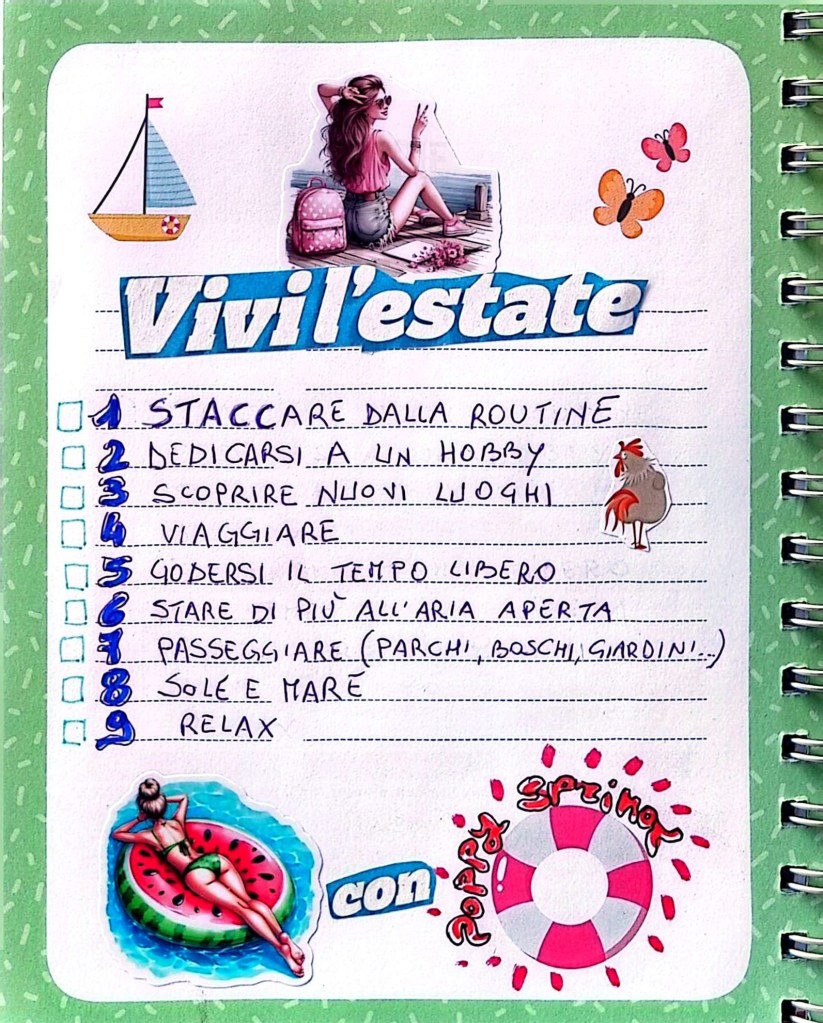 Vivi l'estate
1 STACCARE DALLA ROUTINE
2 DEDICARSI A UN HOBBY
3 SCOPRIRE NUOVI LUOGHI
4 VIAGGIARE
5 GODERSI IL TEMPO LIBERO
6 STARE DI PIÙ ALL'ARIA APERTA
7 PASSEGGIARE (PARCHI, BOSCHI, GIARDINI...)
8 SOLE E MARE
9 RELAX
con
poppy